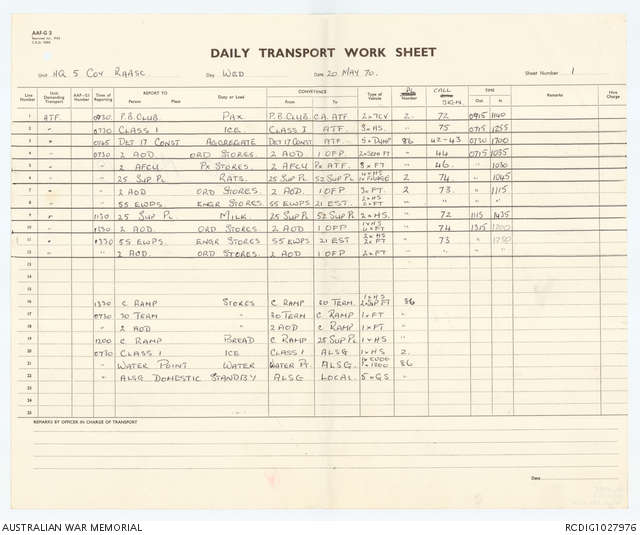 AAF-G 3
DAILY TRANSPORT WORK SHEET
Unit HQ 5 COY RAASC. Day WED Date 20 MAY 70. Sheet Number 1
Line Number Unit Demanding Transport AAF-G1 Number Time of Reporting REPORT TO Person Place Duty or Load CONVEYANCE From To Type of Vehicle PL Number CALL SIGN TIME Out In Remarks Hire Charge
1 ATF. 0930 P.B. CLUB. PAX P.B. CLUB. C.A. ATF. 2. 72 0915 1140
2 " 0730 CLASS I ICE. CLASS I ATF. " 75 0715 1255
3 " 0745 DET 17 CONST AGGREGATE DET 17 CONST ATF. 5 x DUMP 86 42-43 0730 1700
4 " 0730 2 AOD ORD STORES. 2 AOD 1 OFP " 44 0715 1035
5 " " 2 AFCU PX STORES. 2 AFCU PX ATF. " 46. " 1030
6 " " 25 SUP PL RATS. 25 SUP PL 52 SUP PL 2 74 " 1045
7 " " 2 AOD ORD STORES. 2 AOD. 1 OFP 3 x FT. 2 73 " 1115
8 " " 55 EWPS. ENGR STORES 55 EWPS 21 EST. " " " "
9 " 1130 25 SUP PL MILK. 25 SUP PL 52 SUP PL 2 x HS. " 72 1115 1435
10 " 1330 2 AOD ORD STORES. 2 AOD 1 OFP " 74 1315 1700
11 " 1330 55 EWPS. ENGR STORES 55 EWPS 21 EST " 73 " 1750
12 " " 2 AOD. ORD STORES. 2 AOD 1 OFP 2 x FT " " " "
13
14
15
16 1330 C RAMP STORES C RAMP 30 TERM. 86
17 0730 30 TERM " 30 TERM C RAMP. 1 x FT "
18 " 2 AOD " 2 AOD C RAMP 1 x FT "
19 1200 C RAMP BREAD C RAMP 25 SUP PL 1 x HS "
20 0730 CLASS I ICE CLASS I ALSG 1 x HS 2.
21 " WATER POINT WATER WATER PT. ALSG. 86
22 " ALSG DOMESTIC STANDBY ALSG LOCAL. 5 x GS "
23
24
25
REMARKS BY OFFICER IN CHARGE OF TRANSPORT
Date
AUSTRALIAN WAR MEMORIAL RCDIG1027976